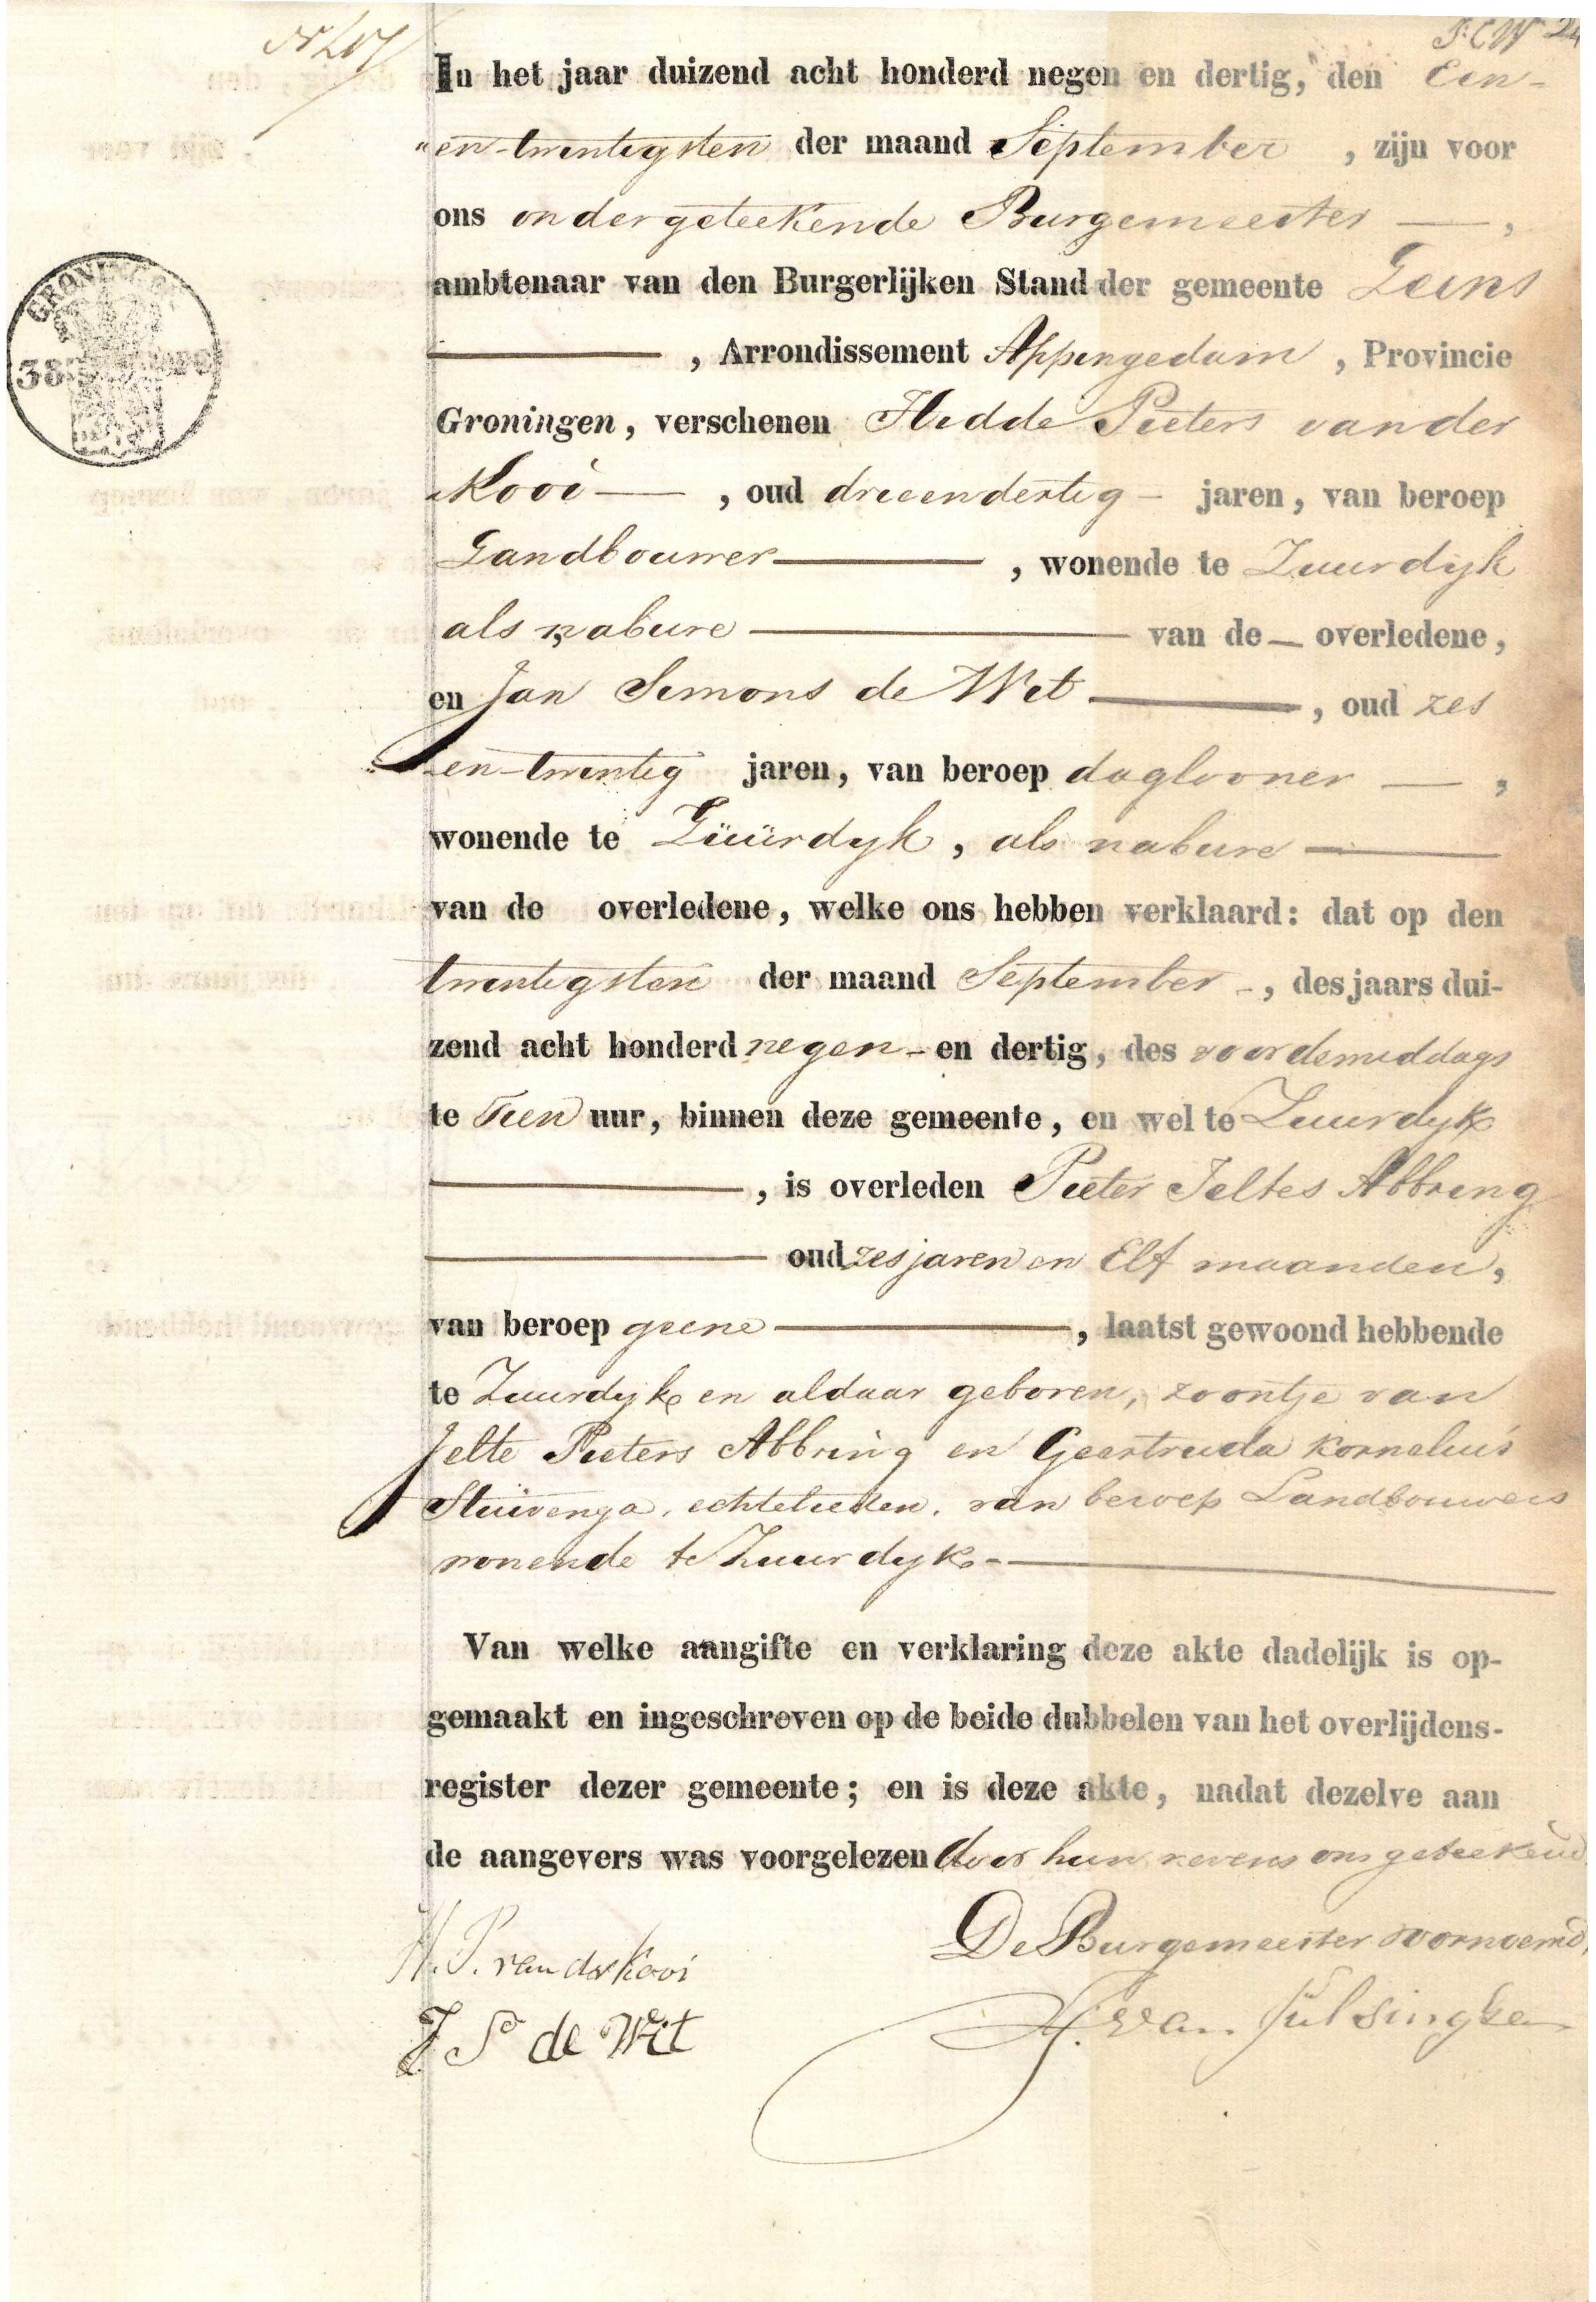 No 47
In het jaar duizend acht honderd negen en dertig, den Een-
en-twintigsten der maand September, zijn voor
ons ondergeteekende Burgemeester —,
ambtenaar van den Burgerlijken Stand der gemeente Leens
—, Arrondissement Appingedam, Provincie
Groningen, verschenen Hedde Pieters van der
Kooi —, oud drieendertig — jaren, van beroep
Landbouwer —, wonende te Zuurdijk
als nabure — van de — overledene,
en Jan Simons de Wit —, oud zes
-en-twintig jaren, van beroep daglooner —,
wonende te Züürdyk, als nabure —
van de overledene, welke ons hebben verklaard: dat op den
twintigsten der maand September -, des jaars dui-
zend acht honderd negen - en dertig, des voordemiddags
te Tien uur, binnen deze gemeente, en wel te Zuurdyk
—, is overleden Pieter Jeltes Abbring
— oud zes jaren en Elf maanden,
van beroep geene —, laatst gewoond hebbende
te Zuurdyk en aldaar geboren, zoontje van
Jelte Pieters Abbring en Geertruda Kornelius
Stuivenga, echtelieden, van beroep Landbouwers
wonende te Zuurdyk. —
Van welke aangifte en verklaring deze akte dadelijk is op-
gemaakt en ingeschreven op de beide dubbelen van het overlijdens-
register dezer gemeente; en is deze akte, nadat dezelve aan
de aangevers was voorgelezen door hun nevens ons geteekend
De Burgemeester voornoemd,
H. P. van der Kooi
J S de Wit
GRONINGEN
38